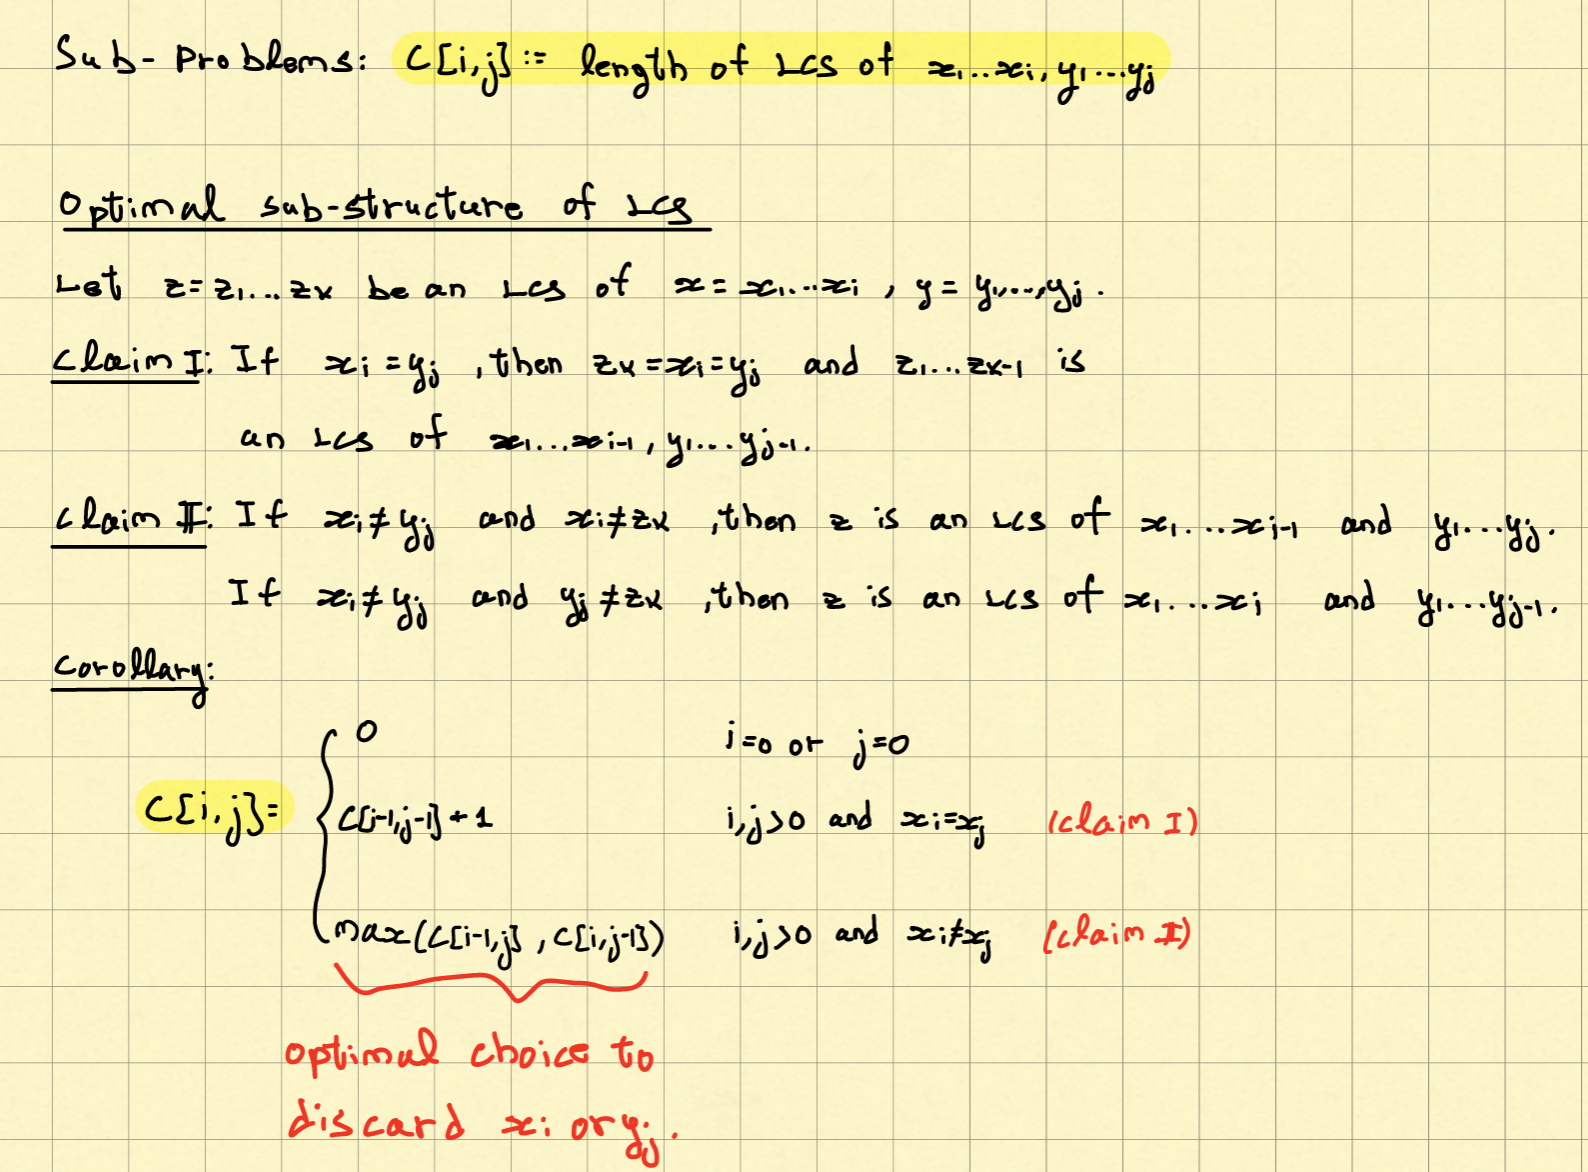 Sub-Problems: C[i,j] := length of LCS of x₁...xᵢ, y₁...yⱼ
Optimal sub-structure of LCS
Let z=z₁...zₖ be an LCS of x=x₁...xᵢ, y=y₁,...,yⱼ.
Claim I: If xᵢ=yⱼ, then zₖ=xᵢ=yⱼ and z₁...zₖ₋₁ is
an LCS of x₁...xᵢ₋₁, y₁...yⱼ₋₁.
Claim II: If xᵢ≠yⱼ and xᵢ≠zₖ, then z is an LCS of x₁...xᵢ₋₁ and y₁...yⱼ.
If xᵢ≠yⱼ and yⱼ≠zₖ, then z is an LCS of x₁...xᵢ and y₁...yⱼ₋₁.
Corollary:
0 i=0 or j=0
C[i,j]= { C[i-1,j-1]+1 i,j>0 and xᵢ=xⱼ (Claim I)
max(C[i-1,j], C[i,j-1]) i,j>0 and xᵢ≠xⱼ (Claim II)
optimal choice to
discard xᵢ or yⱼ.